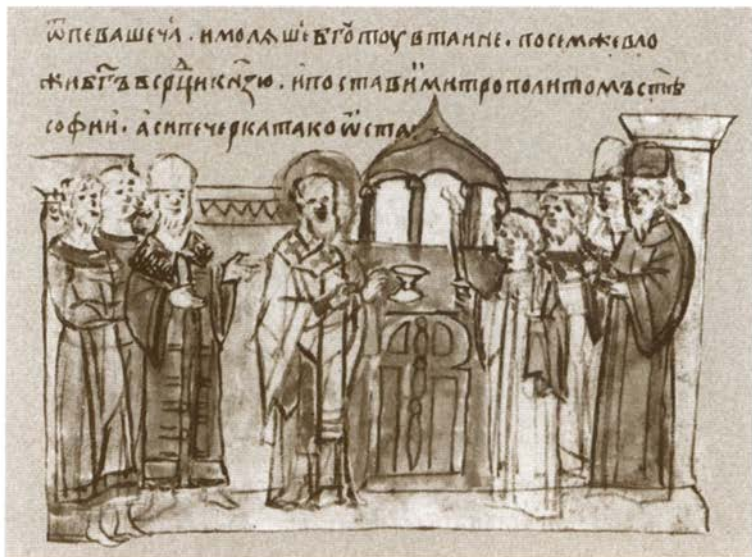 ѿпеваше чѧ҇. и молѧше б҃гоу в таине. посем же вло
жи б҃гъ в ср҃дци кн҃зю. и постави ѝ митрополитомъ ст҃ѣ
софии. а си печерка тако ѡста